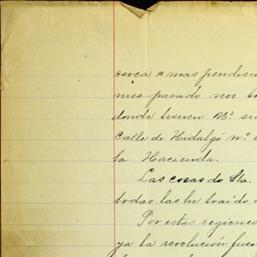 cerca a mas pendien
mes pasado nos tr
donde tienen Md. su
Calle de Hidalgo nº.
la Hacienda.
Las cosas de Sta.
todas las he traído
Por estas regiones
ya la revolución fue